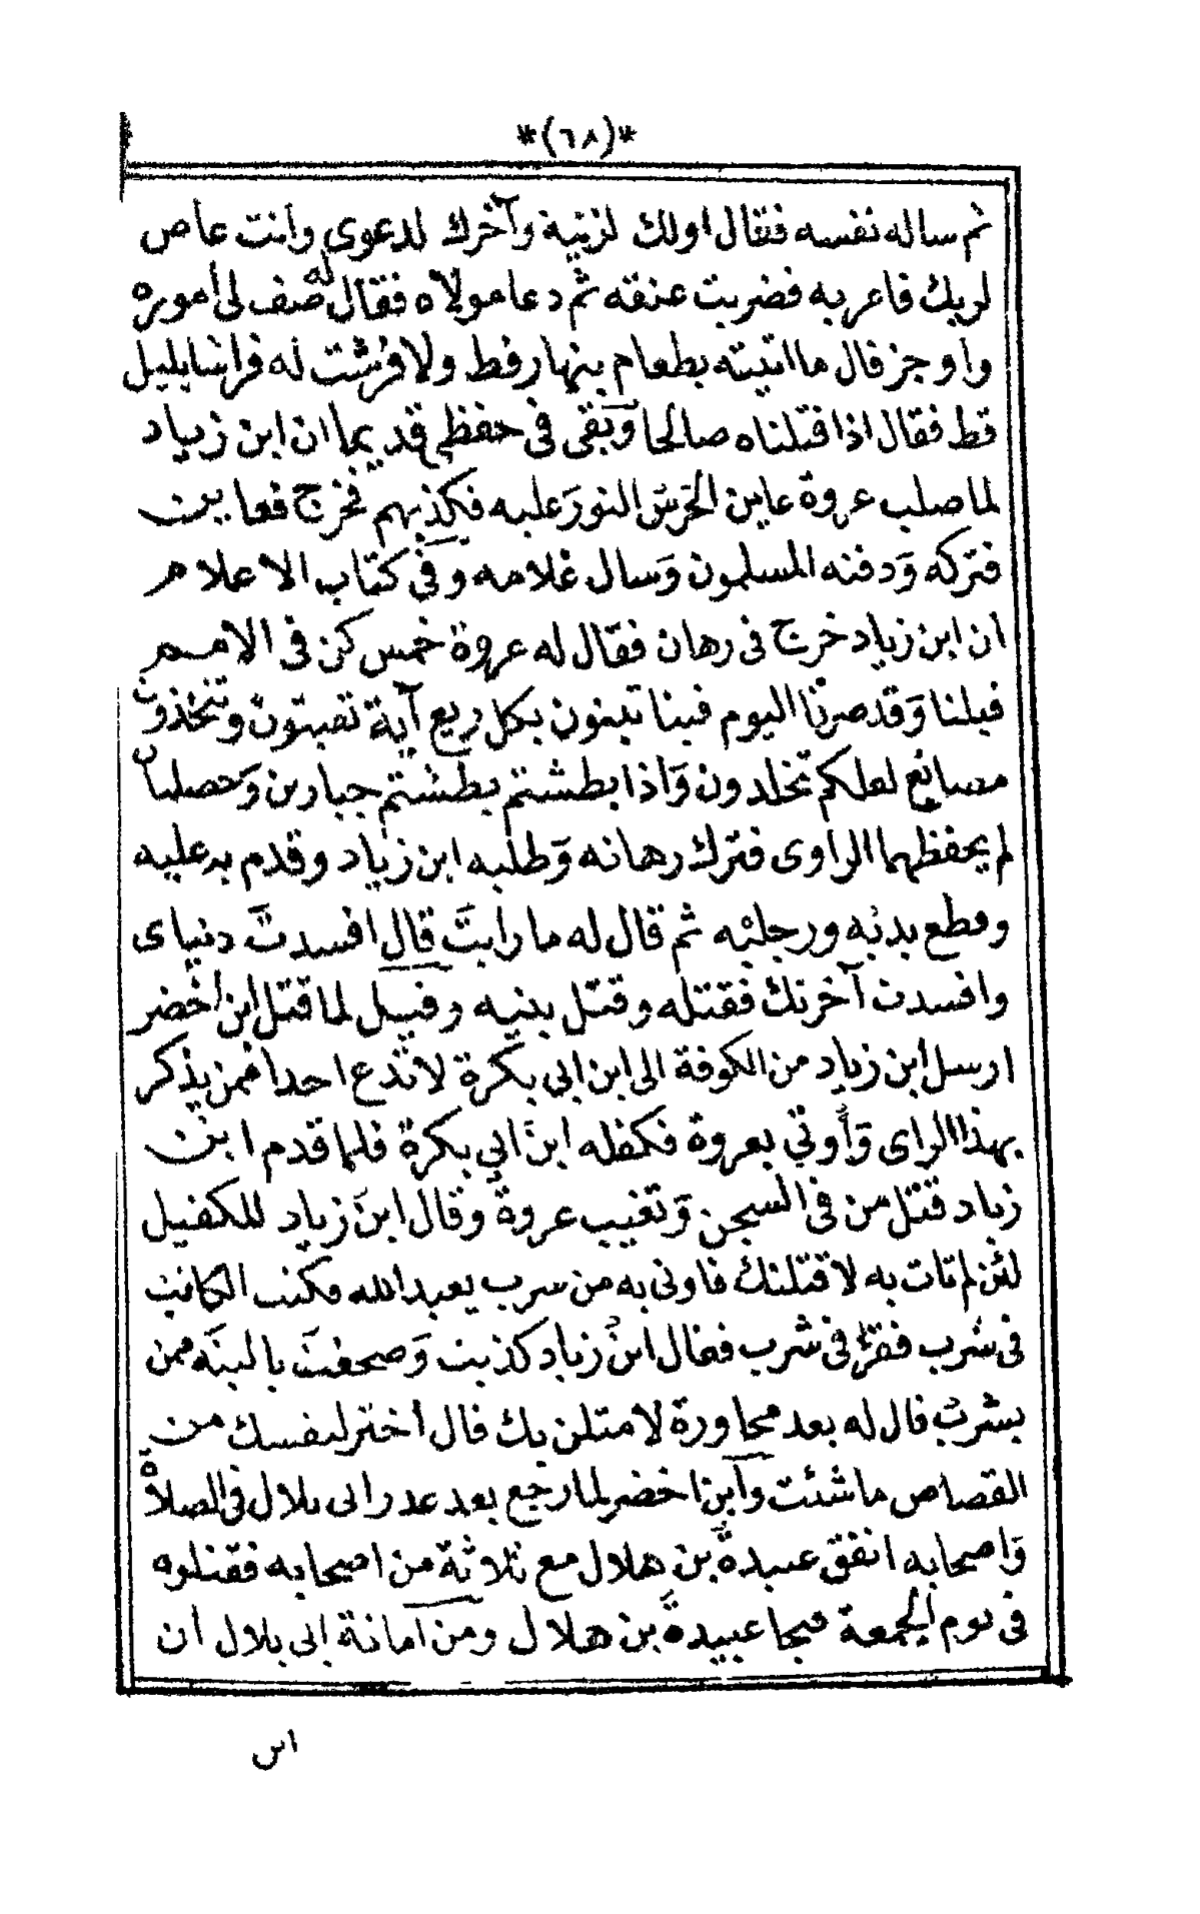 *(٦٨)*
ثم ساله نفسه فقال اولك لزنية وآخرك لدعوى وانت عاص
لربك فامر به فضربت عنقه ثم دعا مولاه فقال له صف لى اموره
واوجز قال ما اتيته بطعام بنهار قط ولا فرشت له فراشا بليل
قط فقال اذا قتلناه صالحا وبقى فى حفظى قديما ان ابن زياد
لما صلب عروة عاين الحرس النور عليه فكذبهم فخرج فعاين
فتركه ودفنه المسلمون وسال غلامه وفى كتاب الاعلام
ان ابن زياد خرج فى رهان فقال له عروة خمس كن فى الامم
قبلنا وقد صرنا اليوم فينا تبنون بكل ريع آية تعبثون وتتخذون
مصانع لعلكم تخلدون واذا بطشتم بطشتم جبارين وخصلتان
لم يحفظهما الراوى فترك رهانه وطلبه ابن زياد وقدم به عليه
وقطع يديه ورجليه ثم قال له ما رايت قال افسدت دنياى
وافسدت آخرتك فقتله وقتل بنيه وقيل لما قتل ابن اخضر
ارسل ابن زياد من الكوفة الى ابن ابي بكرة لا تدع احدا ممن يذكر
بهذا الراى وأوتي بعروة فكفله ابن ابي بكرة فلما قدم ابن
زياد قتل من فى السجن وتغيب عروة وقال ابن زياد للكفيل
لئن لم تات به لاقتلنك فاوتى به من سرب بعبد الله فكتب الكاتب
فى شرب فقرأ فى شرب فقال ابن زياد كذبت وصحفت يا ليته ممن
يشرب قال له بعد محاورة لامثلن بك قال اختر لنفسك من
القصاص ما شئت وابن اخضر لما رجع بعد غدر ابى بلال فى الصلاة
واصحابه اتفق عبيدة بن هلال مع ثلاثة من اصحابه فقتلوه
فى يوم الجمعة فنجا عبيدة بن هلال ومن امانة ابى بلال ان
اس